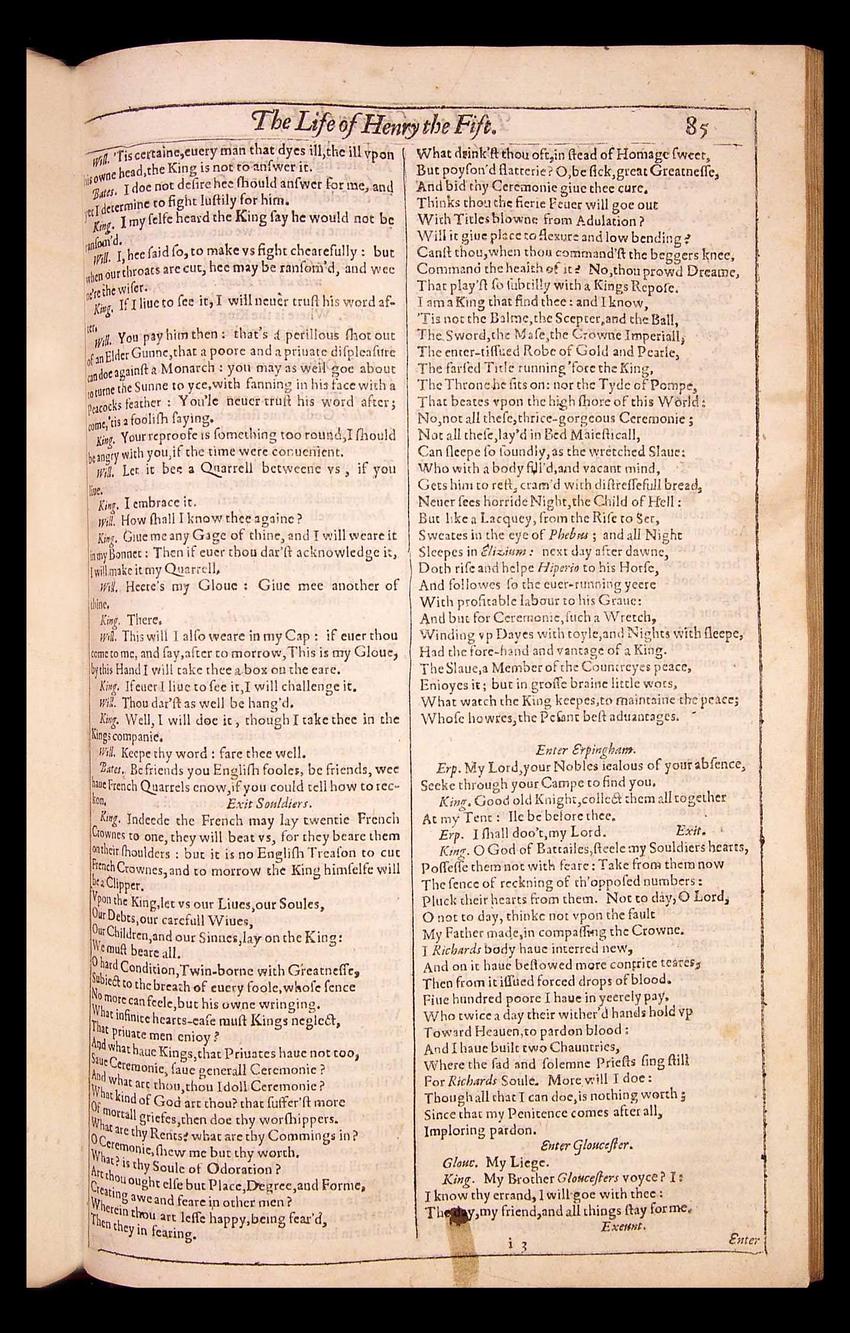 The Life of Henry the Fift. 85
Will. 'Tis certaine,euery man that dyes ill,the ill vpon
his owne head,the King is not to anſwer it.
Bates. I doe not deſire hee ſhould anſwer for me, and
yet I determine to fight luſtily for him.
King. I my ſelfe heard the King ſay he would not be
ranſom'd.
Will. I, hee ſaid ſo, to make vs fight chearefully : but
when our throats are cut, hee may be ranſom'd, and wee
ne're the wiſer.
King. If I liue to ſee it, I will neuer truſt his word af-
ter.
Will. You pay him then : that's a perillous ſhot out
of an Elder Gunne,that a poore and a priuate diſpleaſure
can doe againſt a Monarch : you may as well goe about
to turne the Sunne to yce,with fanning in his face with a
Peacocks feather : You'le neuer truſt his word after;
come,'tis a fooliſh ſaying.
King. Your reproofe is ſomething too round,I ſhould
be angry with you,if the time were conuenient.
Will. Let it bee a Quarrell betweene vs , if you
liue.
King. I embrace it.
Will. How ſhall I know thee againe?
King. Giue me any Gage of thine, and I will weare it
in my Bonnet : Then if euer thou dar'ſt acknowledge it,
I will make it my Quarrell.
Will. Heere's my Gloue : Giue mee another of
thine.
King. There.
Will. This will I alſo weare in my Cap : if euer thou
come to me, and ſay,after to morrow,This is my Gloue,
by this Hand I will take thee a box on the eare.
King. If euer I liue to ſee it,I will challenge it.
Will. Thou dar'ſt as well be hang'd.
King. Well, I will doe it , though I take thee in the
Kings companie.
Will. Keepe thy word : fare thee well.
Bates. Be friends you Engliſh fooles, be friends, wee
haue French Quarrels enow,if you could tell how to rec-
kon. Exit Souldiers.
King. Indeede the French may lay twentie French
Crownes to one, they will beat vs, for they beare them
on their ſhoulders : but it is no Engliſh Treaſon to cut
French Crownes,and to morrow the King himſelfe will
be a Clipper.
Vpon the King,let vs our Liues,our Soules,
Our Debts,our carefull Wiues,
Our Children,and our Sinnes,lay on the King:
We muſt beare all.
O hard Condition,Twin-borne with Greatneſſe,
Subiect to the breath of euery foole,whoſe ſence
No more can feele,but his owne wringing.
What infinite hearts-eaſe muſt Kings neglect,
That priuate men enioy?
And what haue Kings,that Priuates haue not too,
Saue Ceremonie, ſaue generall Ceremonie?
And what art thou,thou Idoll Ceremonie?
What kind of God art thou? that ſuffer'ſt more
Of mortall griefes,then doe thy worſhippers.
What are thy Rents? what are thy Commings in?
O Ceremonie,ſhew me but thy worth.
What? is thy Soule of Odoration?
Art thou ought elſe but Place,Degree,and Forme,
Creating awe and feare in other men?
Wherein thou art leſſe happy,being fear'd,
Then they in fearing.
What drink'ſt thou oft,in ſtead of Homage ſweet,
But poyſon'd flatterie? O,be ſick,great Greatneſſe,
And bid thy Ceremonie giue thee cure.
Thinks thou the fierie Feuer will goe out
With Titles blowne from Adulation?
Will it giue place to flexure and low bending?
Canſt thou,when thou command'ſt the beggers knee,
Command the health of it? No,thou prowd Dreame,
That play'ſt ſo ſubtilly with a Kings Repoſe.
I am a King that find thee : and I know,
'Tis not the Balme,the Scepter,and the Ball,
The Sword,the Maſe,the Crowne Imperiall,
The enter-tiſſued Robe of Gold and Pearle,
The farſed Title running 'fore the King,
The Throne he ſits on : nor the Tyde of Pompe,
That beates vpon the high ſhore of this World:
No,not all theſe,thrice-gorgeous Ceremonie;
Not all theſe,lay'd in Bed Maieſticall,
Can ſleepe ſo ſoundly,as the wretched Slaue:
Who with a body fill'd,and vacant mind,
Gets him to reſt, cram'd with diſtreſſefull bread,
Neuer ſees horride Night,the Child of Hell :
But like a Lacquey, from the Riſe to Set,
Sweates in the eye of Phebus ; and all Night
Sleepes in Elizium : next day after dawne,
Doth riſe and helpe Hiperio to his Horſe,
And followes ſo the euer-running yeere
With profitable labour to his Graue:
And but for Ceremonie,ſuch a Wretch,
Winding vp Dayes with toyle,and Nights with ſleepe,
Had the fore-hand and vantage of a King.
The Slaue,a Member of the Countreyes peace,
Enioyes it; but in groſſe braine little wots,
What watch the King keepes,to maintaine the peace;
Whoſe howres,the Peſant beſt aduantages.
Enter Erpingham.
Erp. My Lord,your Nobles iealous of your abſence,
Seeke through your Campe to find you.
King. Good old Knight,collect them all together
At my Tent : Ile be before thee.
Erp. I ſhall doo't,my Lord. Exit.
King. O God of Battailes,ſteele my Souldiers hearts,
Poſſeſſe them not with feare : Take from them now
The ſence of reckning of th'oppoſed numbers :
Pluck their hearts from them. Not to day,O Lord,
O not to day, thinke not vpon the fault
My Father made,in compaſſing the Crowne.
I Richards body haue interred new,
And on it haue beſtowed more contrite teares,
Then from it iſſued forced drops of blood.
Fiue hundred poore I haue in yeerely pay,
Who twice a day their wither'd hands hold vp
Toward Heauen,to pardon blood :
And I haue built two Chauntries,
Where the ſad and ſolemne Prieſts ſing ſtill
For Richards Soule. More will I doe :
Though all that I can doe,is nothing worth;
Since that my Penitence comes after all,
Imploring pardon.
Enter Glouceſter.
Glouc. My Liege.
King. My Brother Glouceſters voyce? I :
I know thy errand, I will goe with thee :
The day,my friend,and all things ſtay for me.
Exeunt.
i 3 Enter